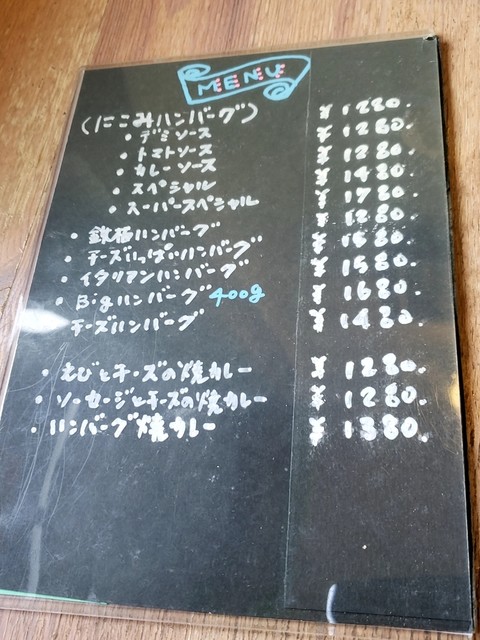 MENU
(にこみハンバーグ)
・デミソース ¥1280.
・トマトソース ¥1280.
・カレーソース ¥1280.
・スペシャル ¥1480.
・スーパースペシャル ¥1780.
・鉄板ハンバーグ ¥1280.
・チーズいっぱいハンバーグ ¥1580.
・イタリアンハンバーグ ¥1580.
・Bigハンバーグ 400g ¥1680.
チーズハンバーグ ¥1480.
・えびとチーズの焼カレー ¥1280.
・ソーセージとチーズの焼カレー ¥1280.
・ハンバーグ焼カレー ¥1380.